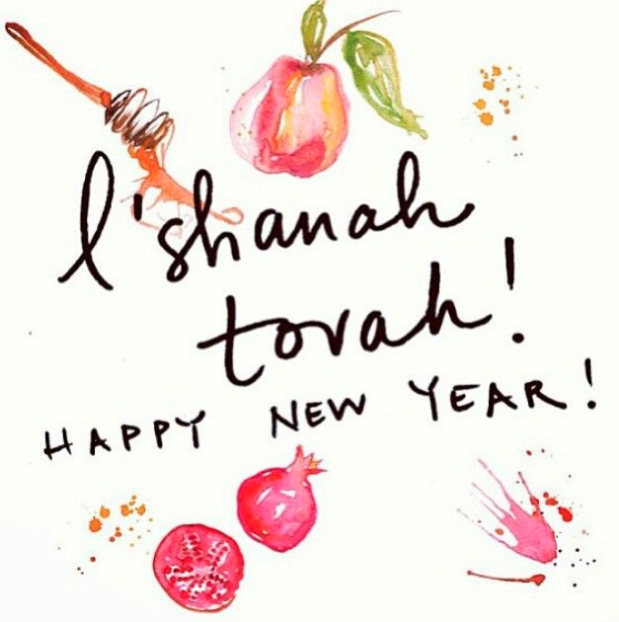 l'shanah
tovah!
HAPPY NEW YEAR!